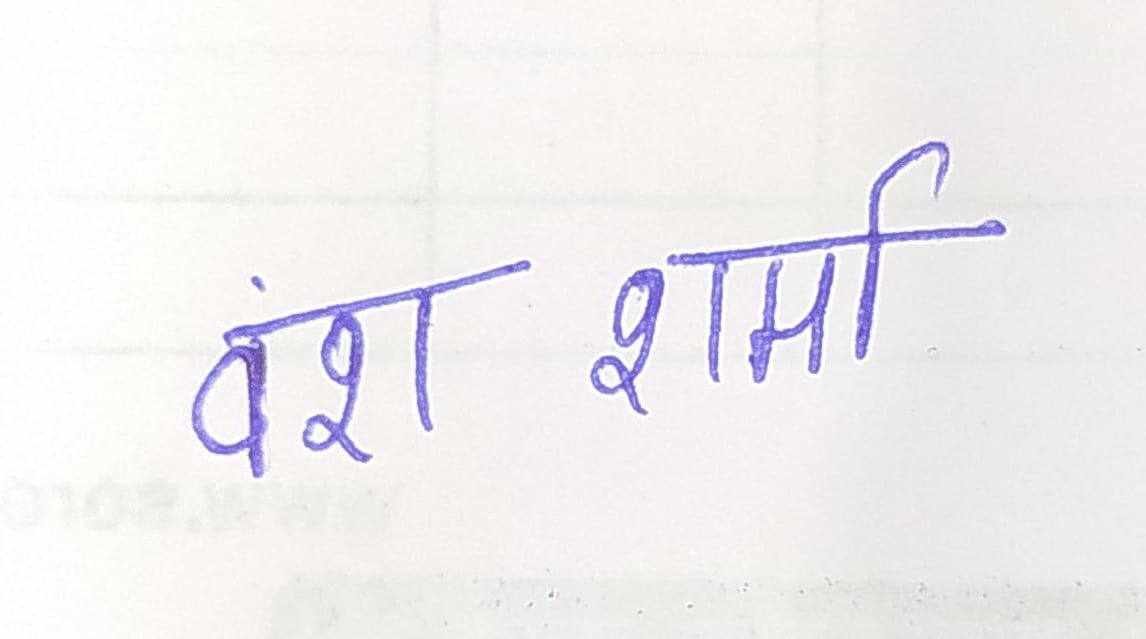 वंश शर्मा